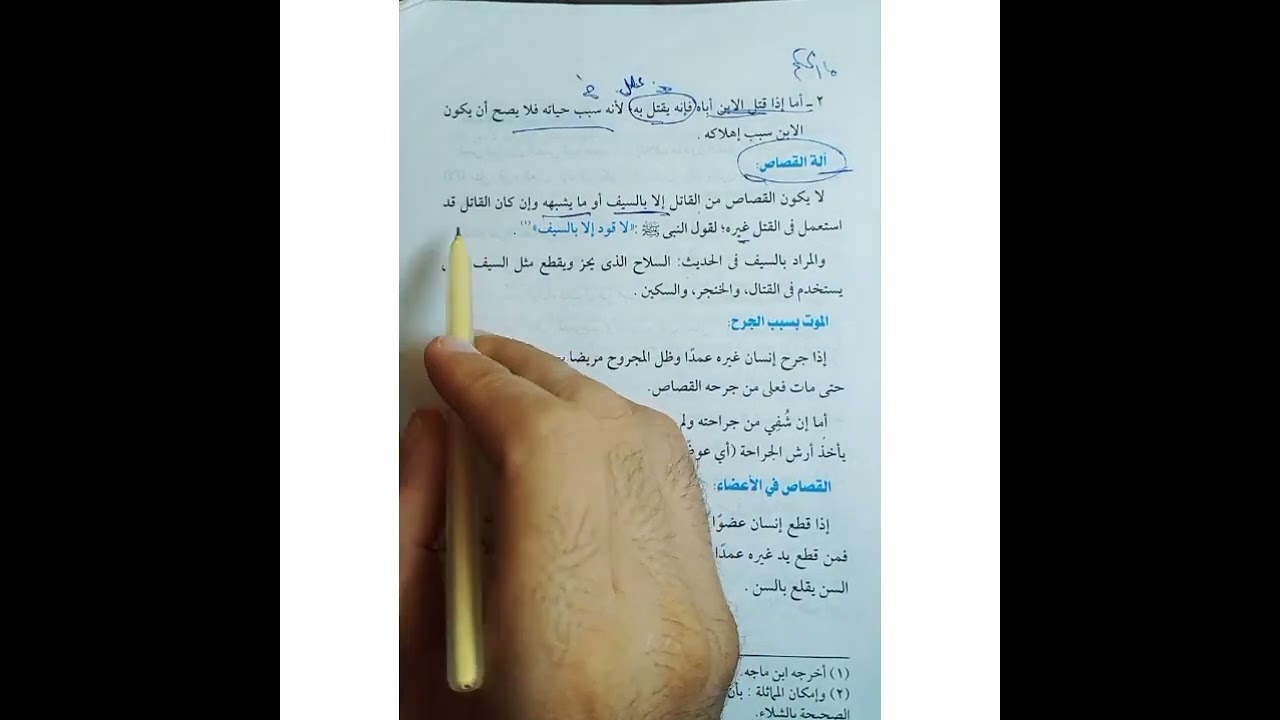 ما الحكم
علل
٢ ـ أما إذا قتل الابن أباه فإنه يقتل به؛ لأنه سبب حياته فلا يصح أن يكون
الابن سبب إهلاكه .
آلة القصاص:
لا يكون القصاص من القاتل إلا بالسيف أو ما يشبهه وإن كان القاتل قد
استعمل فى القتل غيره؛ لقول النبى ﷺ : «لا قود إلا بالسيف» (١) .
والمراد بالسيف فى الحديث: السلاح الذى يحز ويقطع مثل السيف
يستخدم فى القتال، والخنجر، والسكين .
الموت بسبب الجرح:
إذا جرح إنسان غيره عمدًا وظل المجروح مريضا
حتى مات فعلى من جرحه القصاص.
أما إن شُفِي من جراحته ولم
يأخذ أرش الجراحة (أي
القصاص في الأعضاء:
إذا قطع إنسان عضوًا
فمن قطع يد غيره عمدًا
السن يقلع بالسن .
(١) أخرجه ابن ماجه.
(٢) وإمكان المماثلة : بأن
الصحيحة بالشلاء.